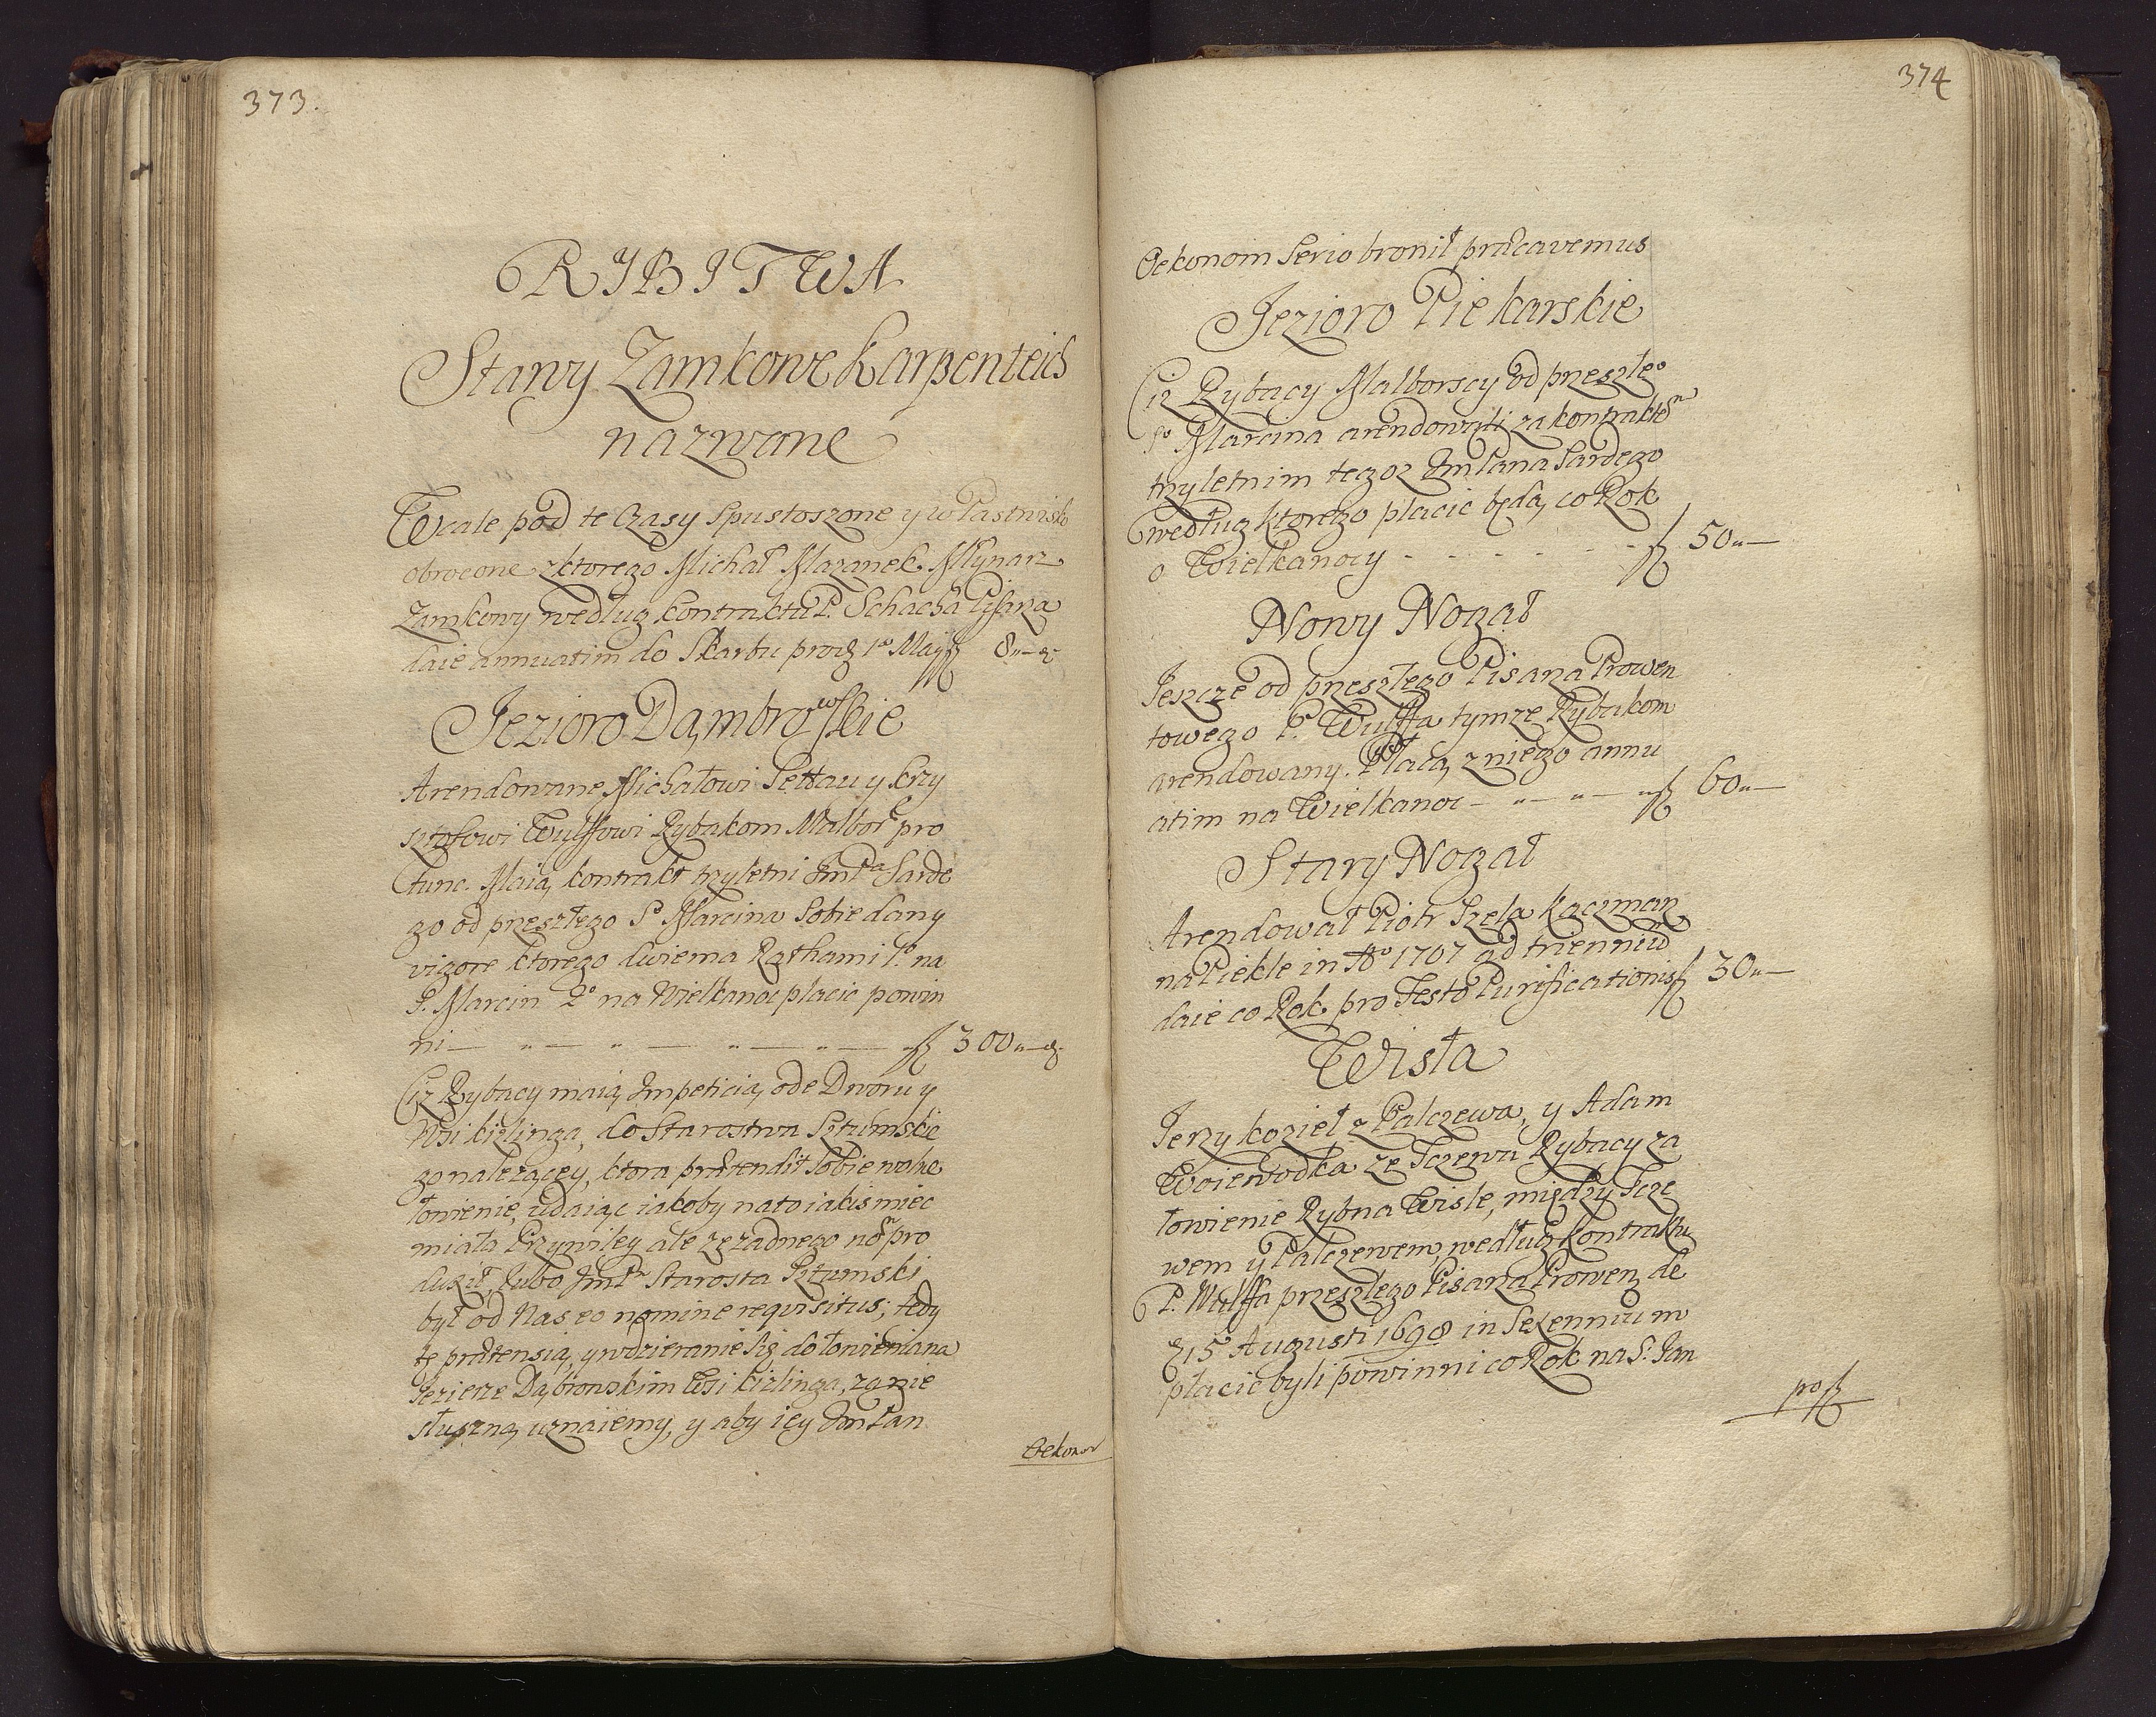 373.
RYBITWA
Stawy Zamkowe Karpenteich
nazwane
Wcale pod te czasy spustoszone y w Pastwisko
obrocone z ktorego Michał Mazanek Młynarz
Zamkowy według kontraktu P. Schacha Pisarza
daie annuatim do Skarbu pro 1º Maij fl 8„—
Jezioro Dąmbrowskie
Arendowane Michałowi Settau y Krzy
sztofowi Wulffowi Rybakom Malbor pro
tunc. Maią kontrakt trzyletni ImPa Sarde
go od przeszłego Sº Marcina sobie dany
vigore ktorego dwiema Rathami 1º na
S. Marcin 2º na Wielkanoc płacic powin
ni — „ — „ — „ — „ — fl 300„—
Ciz Rybacy maią Impeticią ode Dworu y
Wsi Kizlinga, do Starostwa Sztumskie
go nalezącey, ktora prætendit sobie wolne
łowienie, udaiąc iakoby na to iakis miec
miała Przywiley ale ze zadnego nõ pro
duxit, lubo ImPn Starosta Sztumski
był od Nas eo nomine requisitus; tedy
tę prætensią, y wdzieranie się do łowienia na
Jezierze Dąbrowskim Wsi Kizlinga, za nie
słuszną uznaiemy, y aby iey ImPan
Oekonom
374
Oekonom serio bronił præcavemus
Jezioro Piekarskie
Ciz Rybacy Malborscy od przeszłeº
Sº Marcina arendowali za kontraktem
trzyletnim tegoz ImPana Sardego
według ktorego płacic będą co Rok
o Wielkanocy - - - - - fl 50„—
Nowy Nogat
Jeszcze od przeszłego Pisarza Prowen
towego P. Wulffa tymze Rybakom
arendowany. Płacą z niego annu
atim na Wielkanoc — „ — „ — „ fl 60„—
Stary Nogat
Arendował Piotr Szela Kaczmarz
na Piekle in Aº 1707 ad trienniũ
daie co Rok pro Festo Purificationis fl 30„—
Wisła
Jerzy Kozieł z Palczewa, y Adam
Woiewodka ze Tczewa Rybacy za
łowienie Ryb na Wisle, między Tcze
wem y Palczewem, według Kontraktu
P. Wulffa przeszłego Pisarza Prowen de
15 Augusti 1698 in Sexennium
płacic byli powinni co Rok na S. Jan
po fl